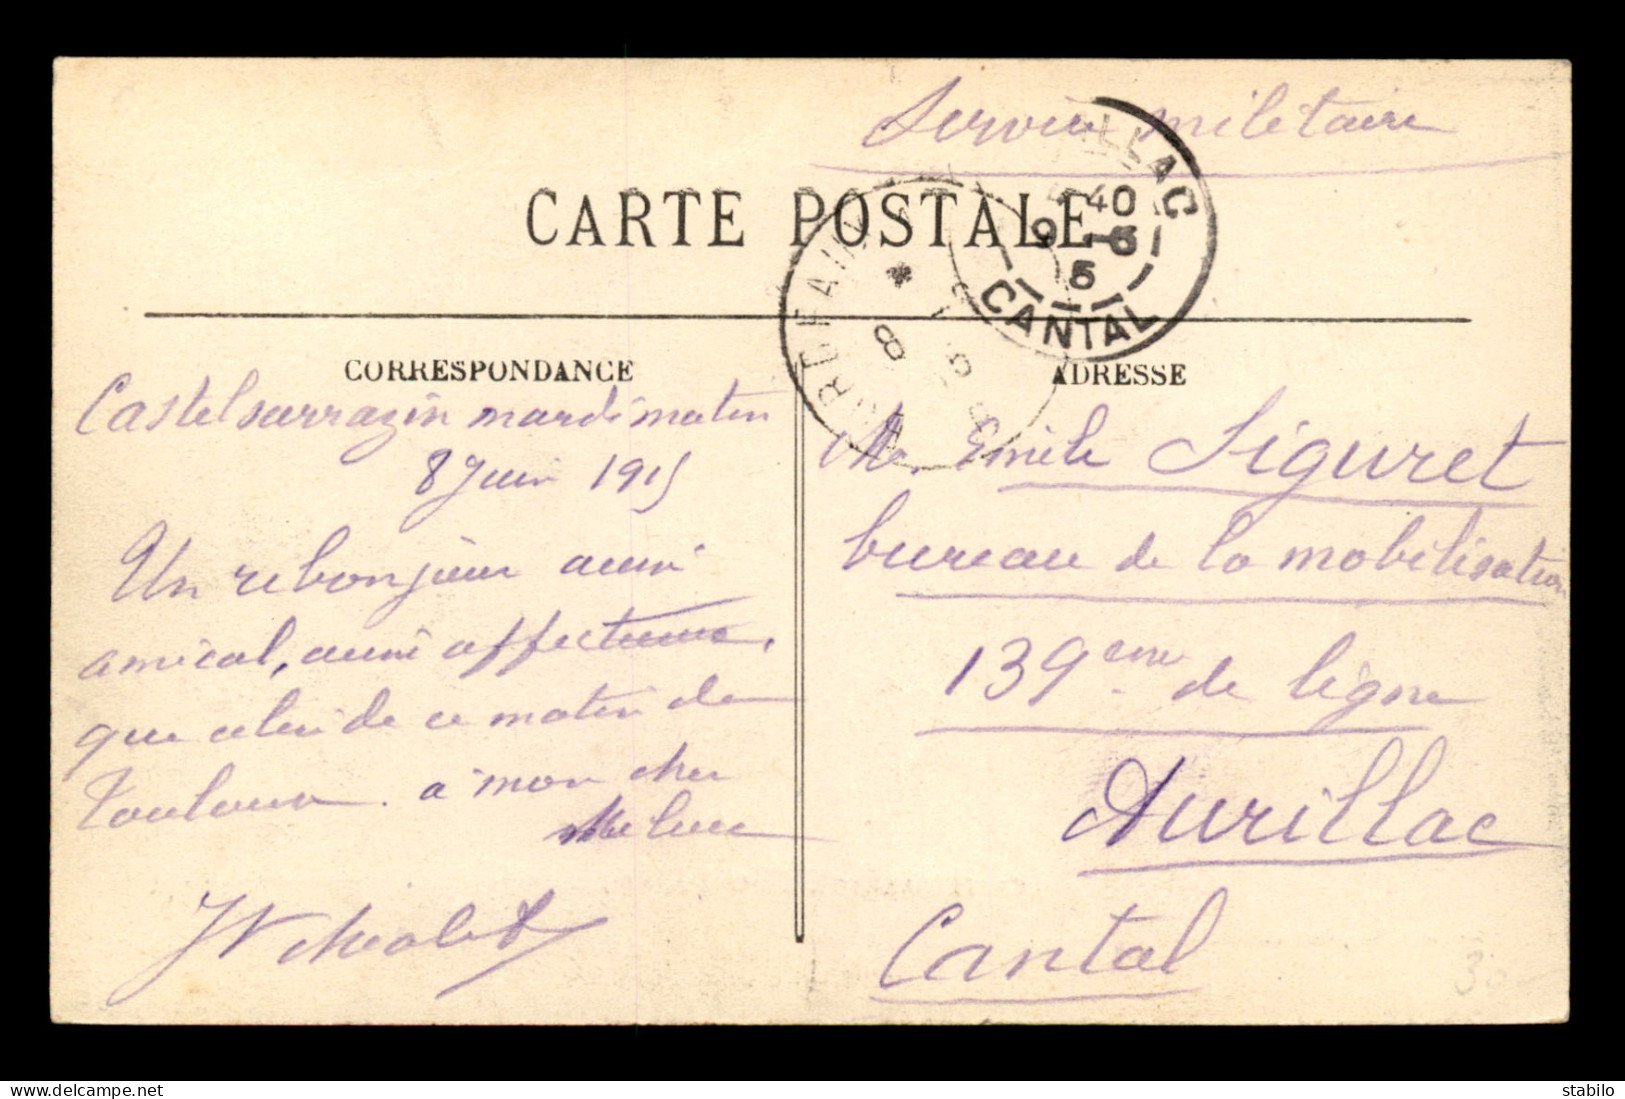 Service militaire
CARTE POSTALE
AURILLAC
40
9 -6
5
CANTAL
*
8
CORRESPONDANCE
ADRESSE
Castelsarrazin mardi matin
8 Juin 1915
Un rebonjour aussi
amical, aussi affectueux,
que celui de ce matin de
Toulouse. à mon cher
M. Emile Siguret
bureau de la mobilisation
139eme de ligne
Aurillac
Cantal
30
delcampe.net
stabilo